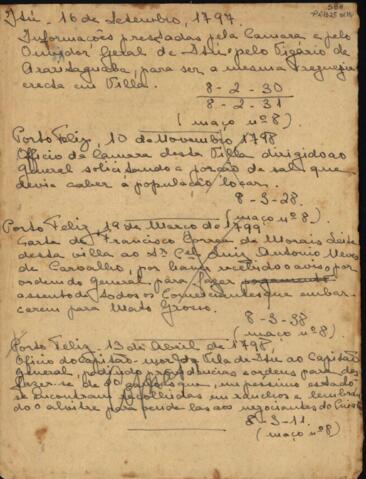 Itú - 16 de Setembro, 1797.
Informações prestadas pela Camara e pelo
Ouvidor Geral de Itú, pelo Vigario de
Araritaguaba, para ser a mesma Freguezia
erecta em Villa.
8-2-30
8-2-31
(maço nº 8)
Porto Feliz, 10 de Novembro 1798
Officio da Camara desta Villa dirigido ao
General solicitando a porção de sal que
devia caber á população local.
8-3-28.
(maço nº 8)
Porto Feliz, 19 de Março de 1799
Carta de Francisco Correa de Morais Leite
desta villa ao Sr. Cel. Luiz Antonio Neves
de Carvalho, por haver recebido o aviso por
ordem do General para fazer
assento de todos os Comerciantes que embar-
carem para Mato Grosso.
8-3-38
(maço nº 8)
Porto Feliz - 13 de Abril de 1798
Oficio do Capitão-mor da Vila de Itu ao Capitão
General, pedindo providencias e ordens para des
fazer-se de que, em pessimo estado
se encontram recolhidas em ranchos e lembran
do o alvitre para vende-las aos negociantes do Cuiabá
8-3-11
(maço nº 8)